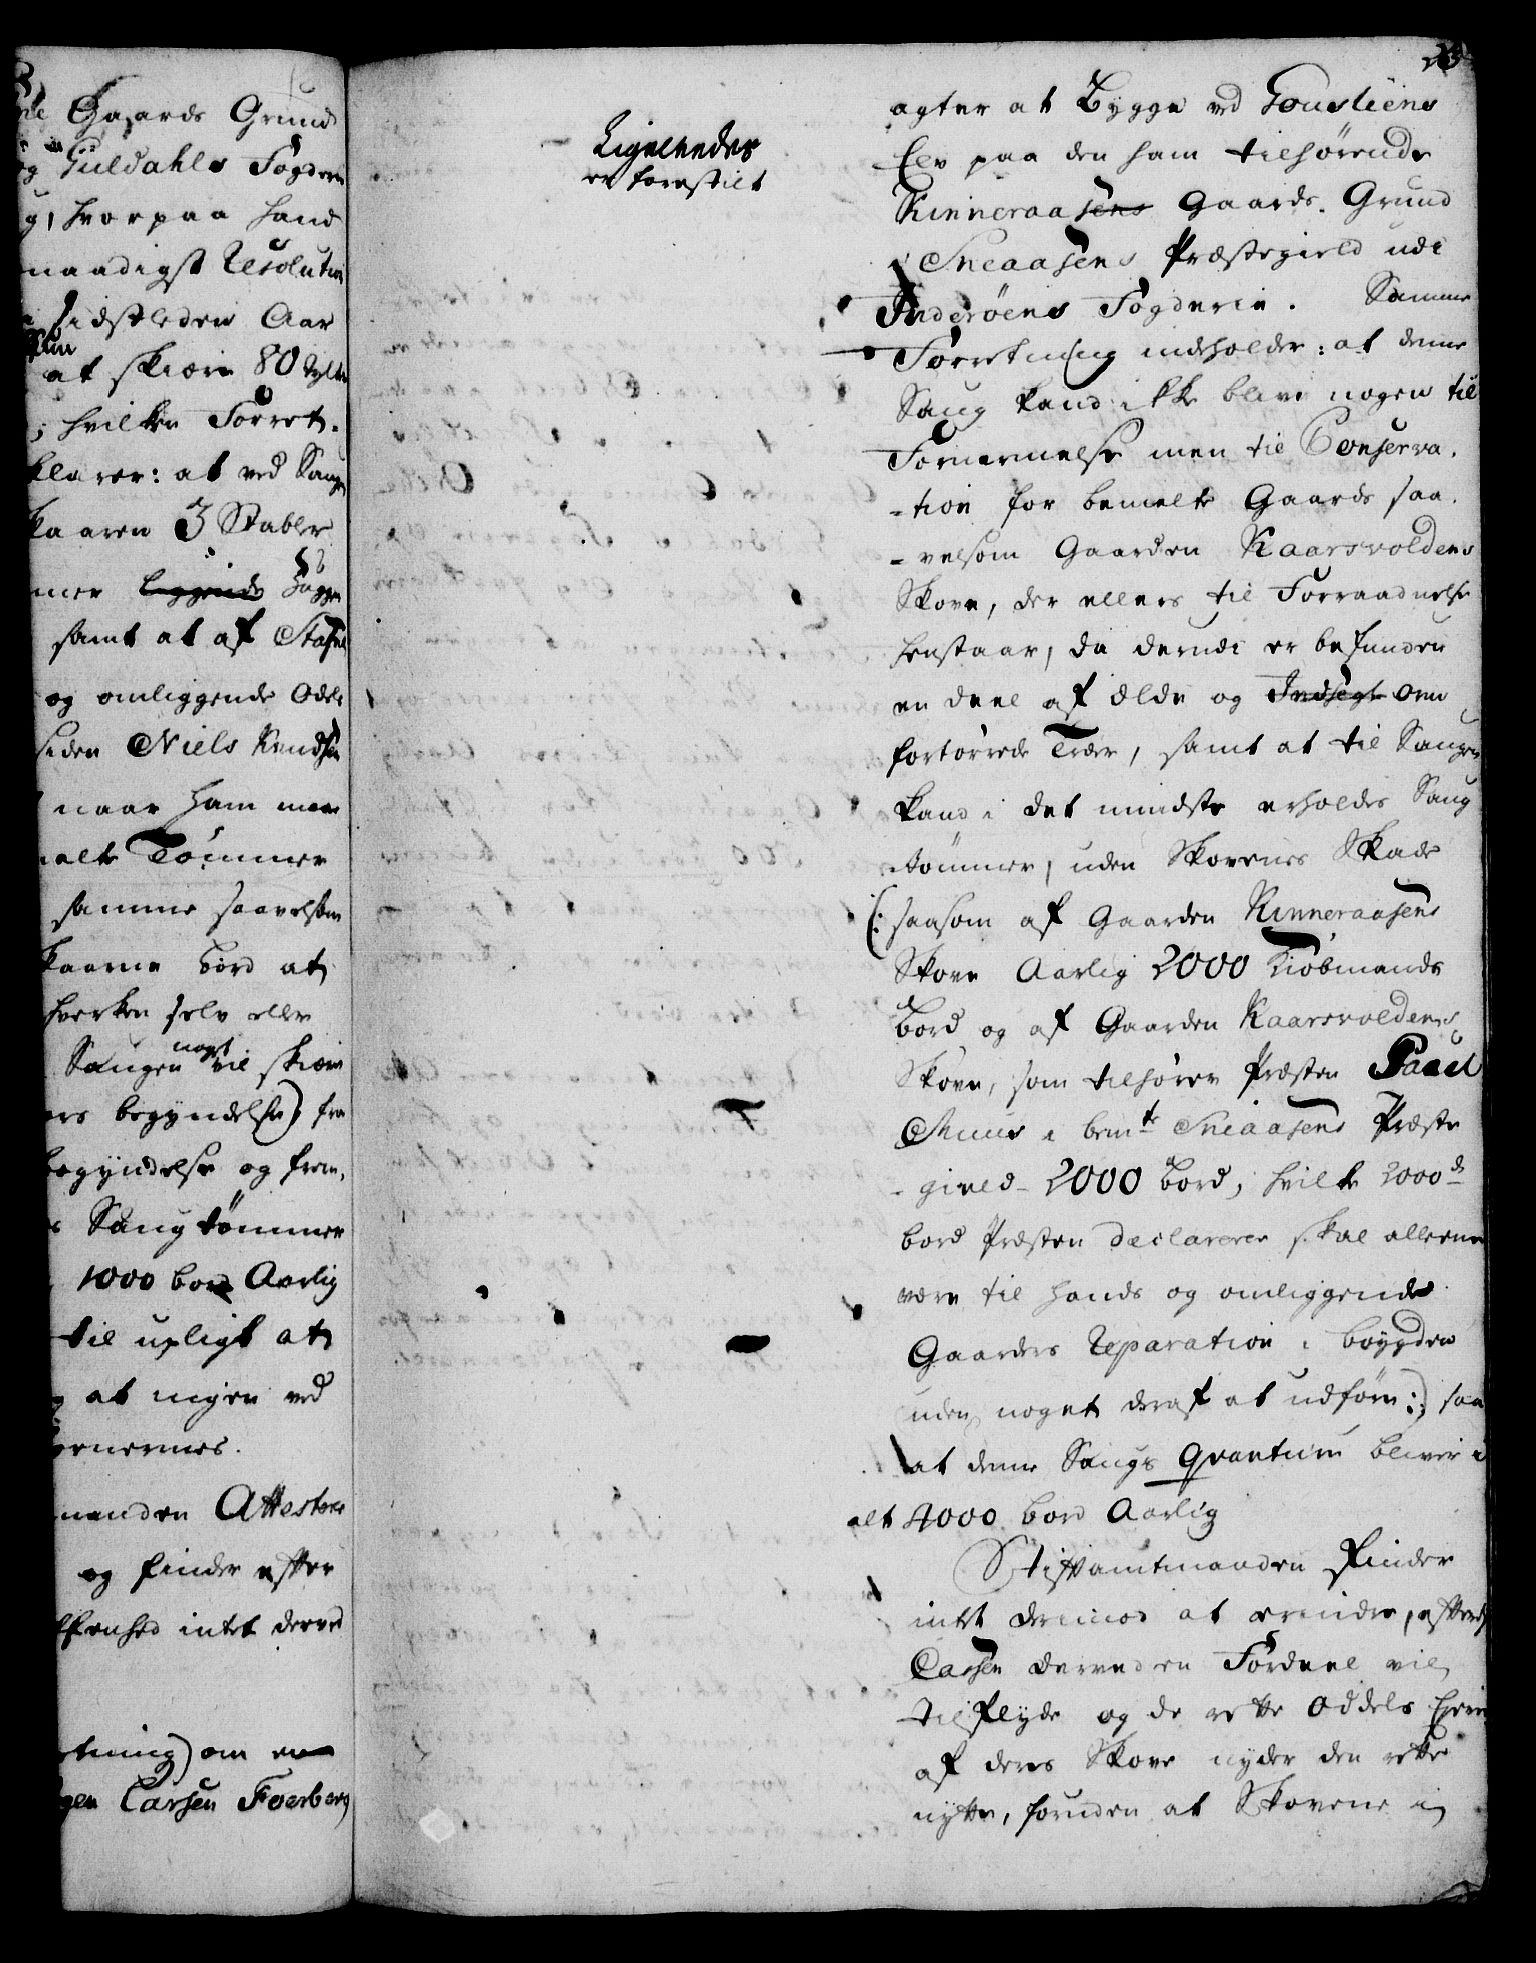 Gaards Grund
Guldahls Fogderie
hvorpaa hand
naadigst Resolution
sidstleden Aar
at skiære 80 Tylter
hvilken Forret.
klarer: at ved Saugen
kaaren 3 Stabler
mer liggende
samt at af
og omliggende Odels
siden Niels Knudsen
naar ham
melte Tømmer
samme saavelsom
kaarne bord at
hverken selv eller
Saugen noget vil skiære
ers begyndelse) fra
begyndelse og frem,
Saugtømmer
1000 bord Aarlig
til upligt at
at ingen ved
fornermes.
manden Attesterer
og finder efter
intet derved
etning) om en
gen Carsen Foerberg
Ligeleedes
er forestilt
agter at bygge ved Gousliens
Elv paa den ham tilhørende
Kinneraasens Gaards Grund
i Sneaasens Præstegield udi
Inderøens Fogderie. Samme
Forretning indeholder: at denne
Saug kand ikke blive nogen til
Fornærmelse men til Conserva.
-tion for bemelte Gaards saa.
-velsom Gaarden Kaarsvoldens
Skove, der ellers til Forraadnelse
henstaar, da derudi er befunden
en deel af ælde og Indsegt om
fortørrede Træer, samt at til Saugen
kand i det mindste erholdes Saug
tømmer, uden Skovenes Skade
(: saasom af Gaarden Kinneraasens
Skove Aarlig 2000 Kiøbmands
bord og af Gaarden Kaarsvoldens
Skove, som tilhører Præsten Paael
Muus i bemte Sneaasens Præste
-gield- 2000 bord, hvilke 2000de
bord Præsten declarerer skal alleene
være til hands og omliggende
Gaarders Reparation i bøygden
uden noget deraf at udføre:) saa
at denne Saugs Qvantum bliver i
alt 4000 bord Aarlig
Stiftamtmanden finder
intet derimod at erindre, efterdj
Cassen derved en Fordeel vil
tilflyde og de rette Oddels Ejere
af deres Skove nyder den rette
nytte, foruden at Skovene ej